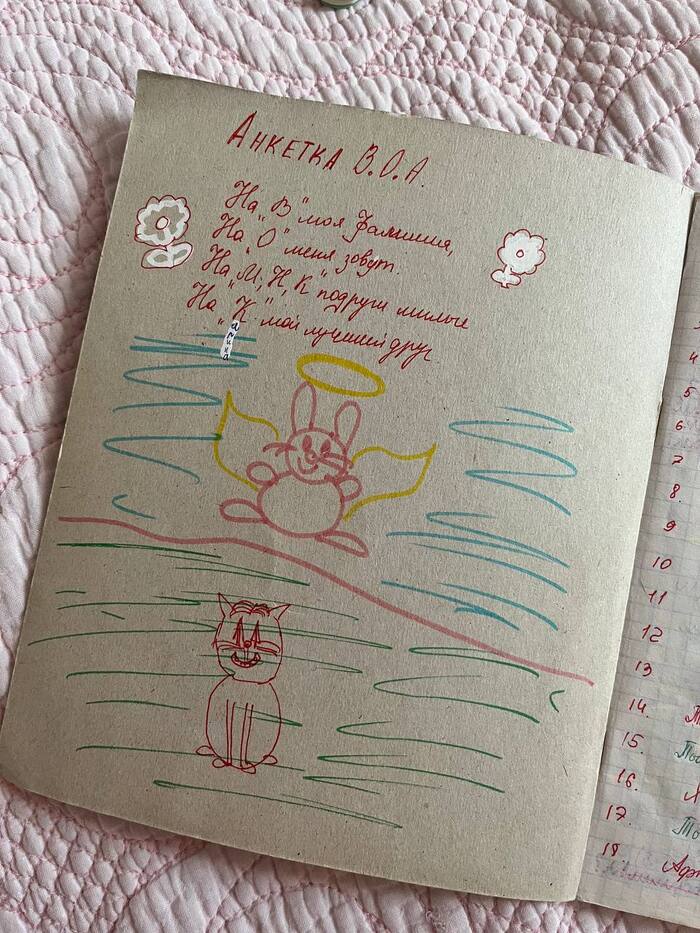 Анкетка В.О.А.
На "В" моя фамилия,
На "О" меня зовут.
На "М, Н, К" подруги милые
На "К" мой лучший друг
4
5
6
7
8.
9.
10
11
12
13
14.
15.
16.
17.
18